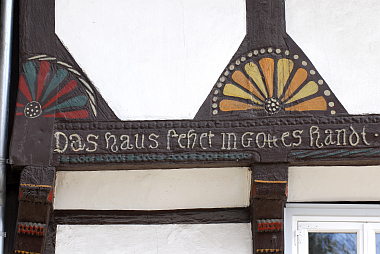 Das haus stehet in Gottes handt